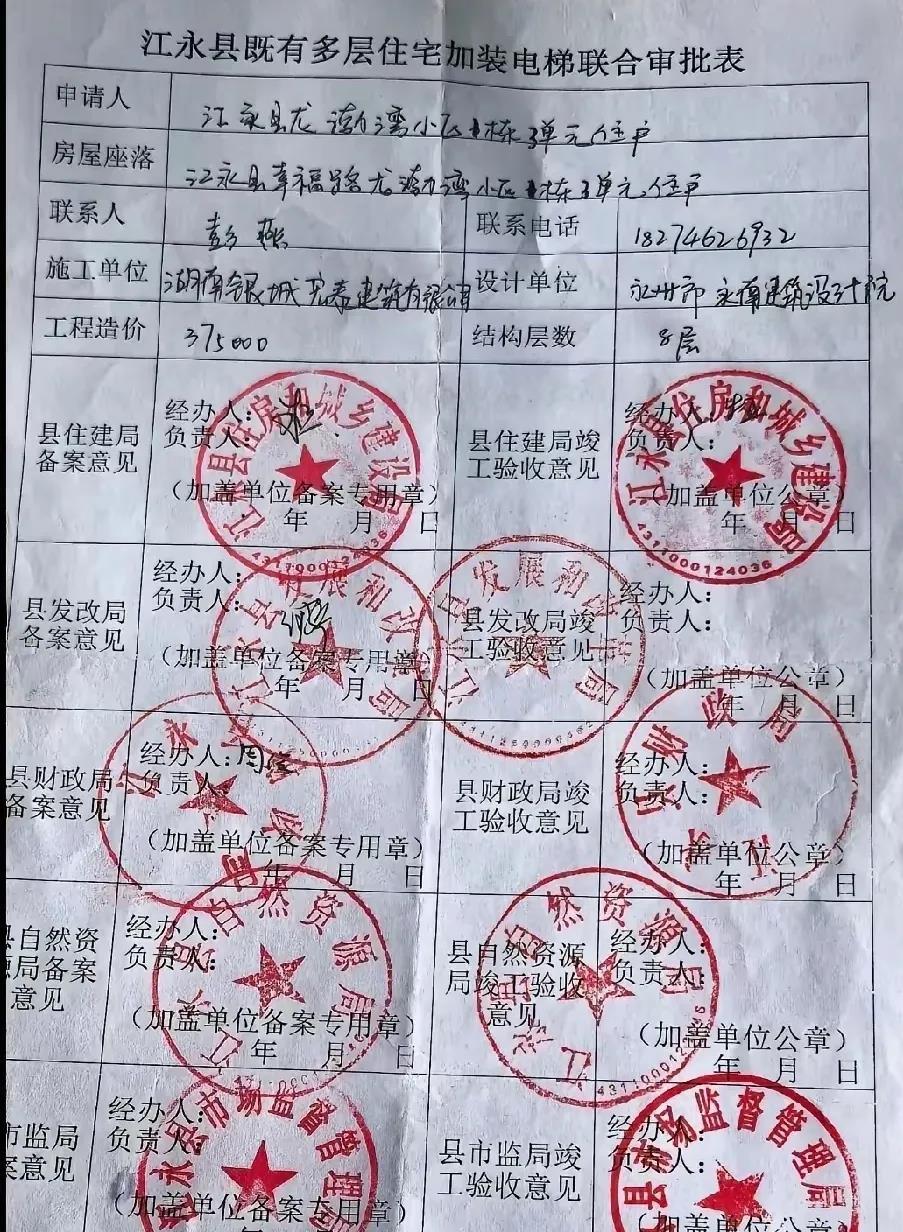 江永县既有多层住宅加装电梯联合审批表
申请人 江永县龙 湾小区 栋3单元住户
房屋座落 江永县幸福路龙 湾小区 栋3单元住户
联系人 彭 联系电话 18274626932
施工单位 湖南银城 建筑有限公司 设计单位 永州市永 建筑设计院
工程造价 375000 结构层数 8层
县住建局备案意见
经办人:
负责人:
(加盖单位备案专用章)
年 月 日
江永县住房和城乡建设局
县住建局竣工验收意见
经办人:
负责人:
(加盖单位公章)
年 月 日
江永县住房和城乡建设局
4311000124036
县发改局备案意见
经办人:
负责人:
(加盖单位备案专用章)
年 月 日
江永县发展和改 局
县发改局竣工验收意见
经办人:
负责人:
(加盖单位公章)
年 月 日
江 发展和 局
县财政局备案意见
经办人:周
负责人:
(加盖单位备案专用章)
年 月 日
江永县财政局
县财政局竣工验收意见
经办人:
负责人:
(加盖单位公章)
年 月 日
江永县财政局
县自然资源局备案意见
经办人:
负责人:
(加盖单位备案专用章)
年 月 日
江永县自然资源局
县自然资源局竣工验收意见
经办人:
负责人:
(加盖单位公章)
年 月 日
江永县自然资源局
市监局 案意见
经办人:
负责人:
(加盖单位备案专用章)
永县市场监督管理
县市监局竣工验收意见
经办人:
负责人:
(加盖单位公章)
县市场监督管理局